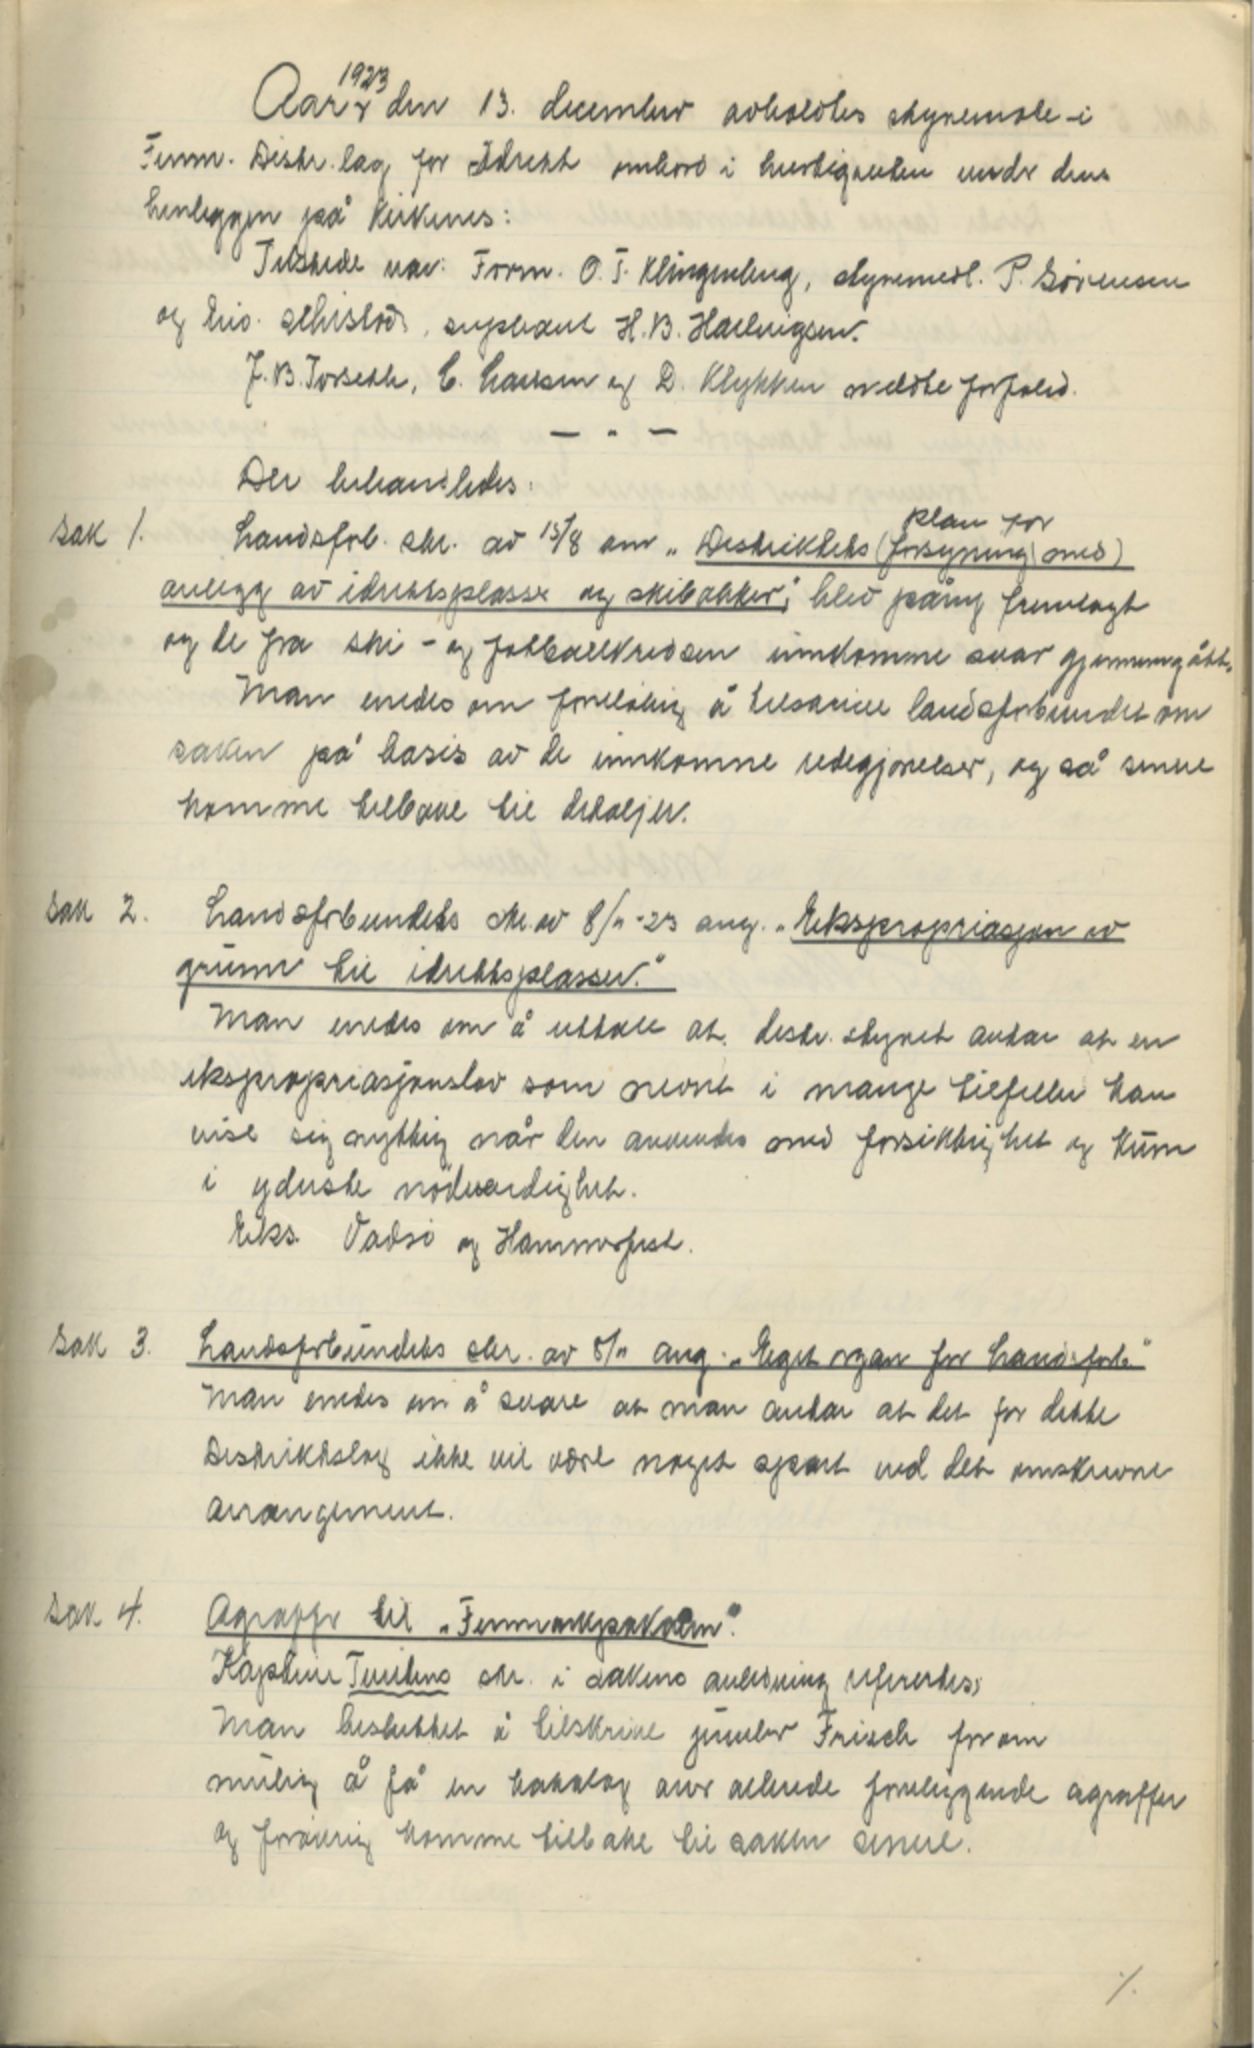 1923
Aar den 13. december avholdtes styremøte i
Finnm. Distr. lag for Idrett ombord i hurtigruten under dens
henliggen på Kirkenes:
Tilstede var: Form. O. T. Klingenberg, styremedl. P. Sørensen
og suppleant H. B. Hællvigsen.
J. B. Torseth, C. Larsen og D. Klykken meldte forfald.
— " —
Der behandledes:
plan for
Sak 1. Landsforb. skr. av 15/8 om „Distriktets (forsyning med)
anlegg av idrettsplasse og skibakker", blev påny fremlagt
og de fra ski- og fotballkredsen innkomne svar gjennemgått.
Man enedes om foreløbig å tilskrive landsforbundet om
saken på basis av de innkomne redegjørelser, og så senere
komme tilbake til detaljer.
Sak 2. Landsforbundets skr. av 8/11-23 ang. „Ekspropriasjon av
grunn til idrettsplasser."
Man enedes om å uttale at distr. styret antar at en
ekspropriasjonslov som nevnt i mange tilfeller kan
vise sig nyttig når den anvendes med forsiktighet og kun
i yderste nödvendighet.
Eks. Vadsö og Hammerfest.
Sak 3. Landsforbundets skr. av 8/11 ang. „Eget organ for Landsforb."
Man enedes om å svare at man antar at det for dette
Distriktslag ikke vil være noget spart ved det omskrevne
arrangement.
Sak 4. Agraffer til „Finnmarkspokalen".
Kaptein skr. i sakens anledning refertes;
Man besluttet å tilskrive juveler Frisch for om
mulig å få en katalog over allerede foreliggende agraffer
og forøvrig komme tilbake til saken senere.
./.